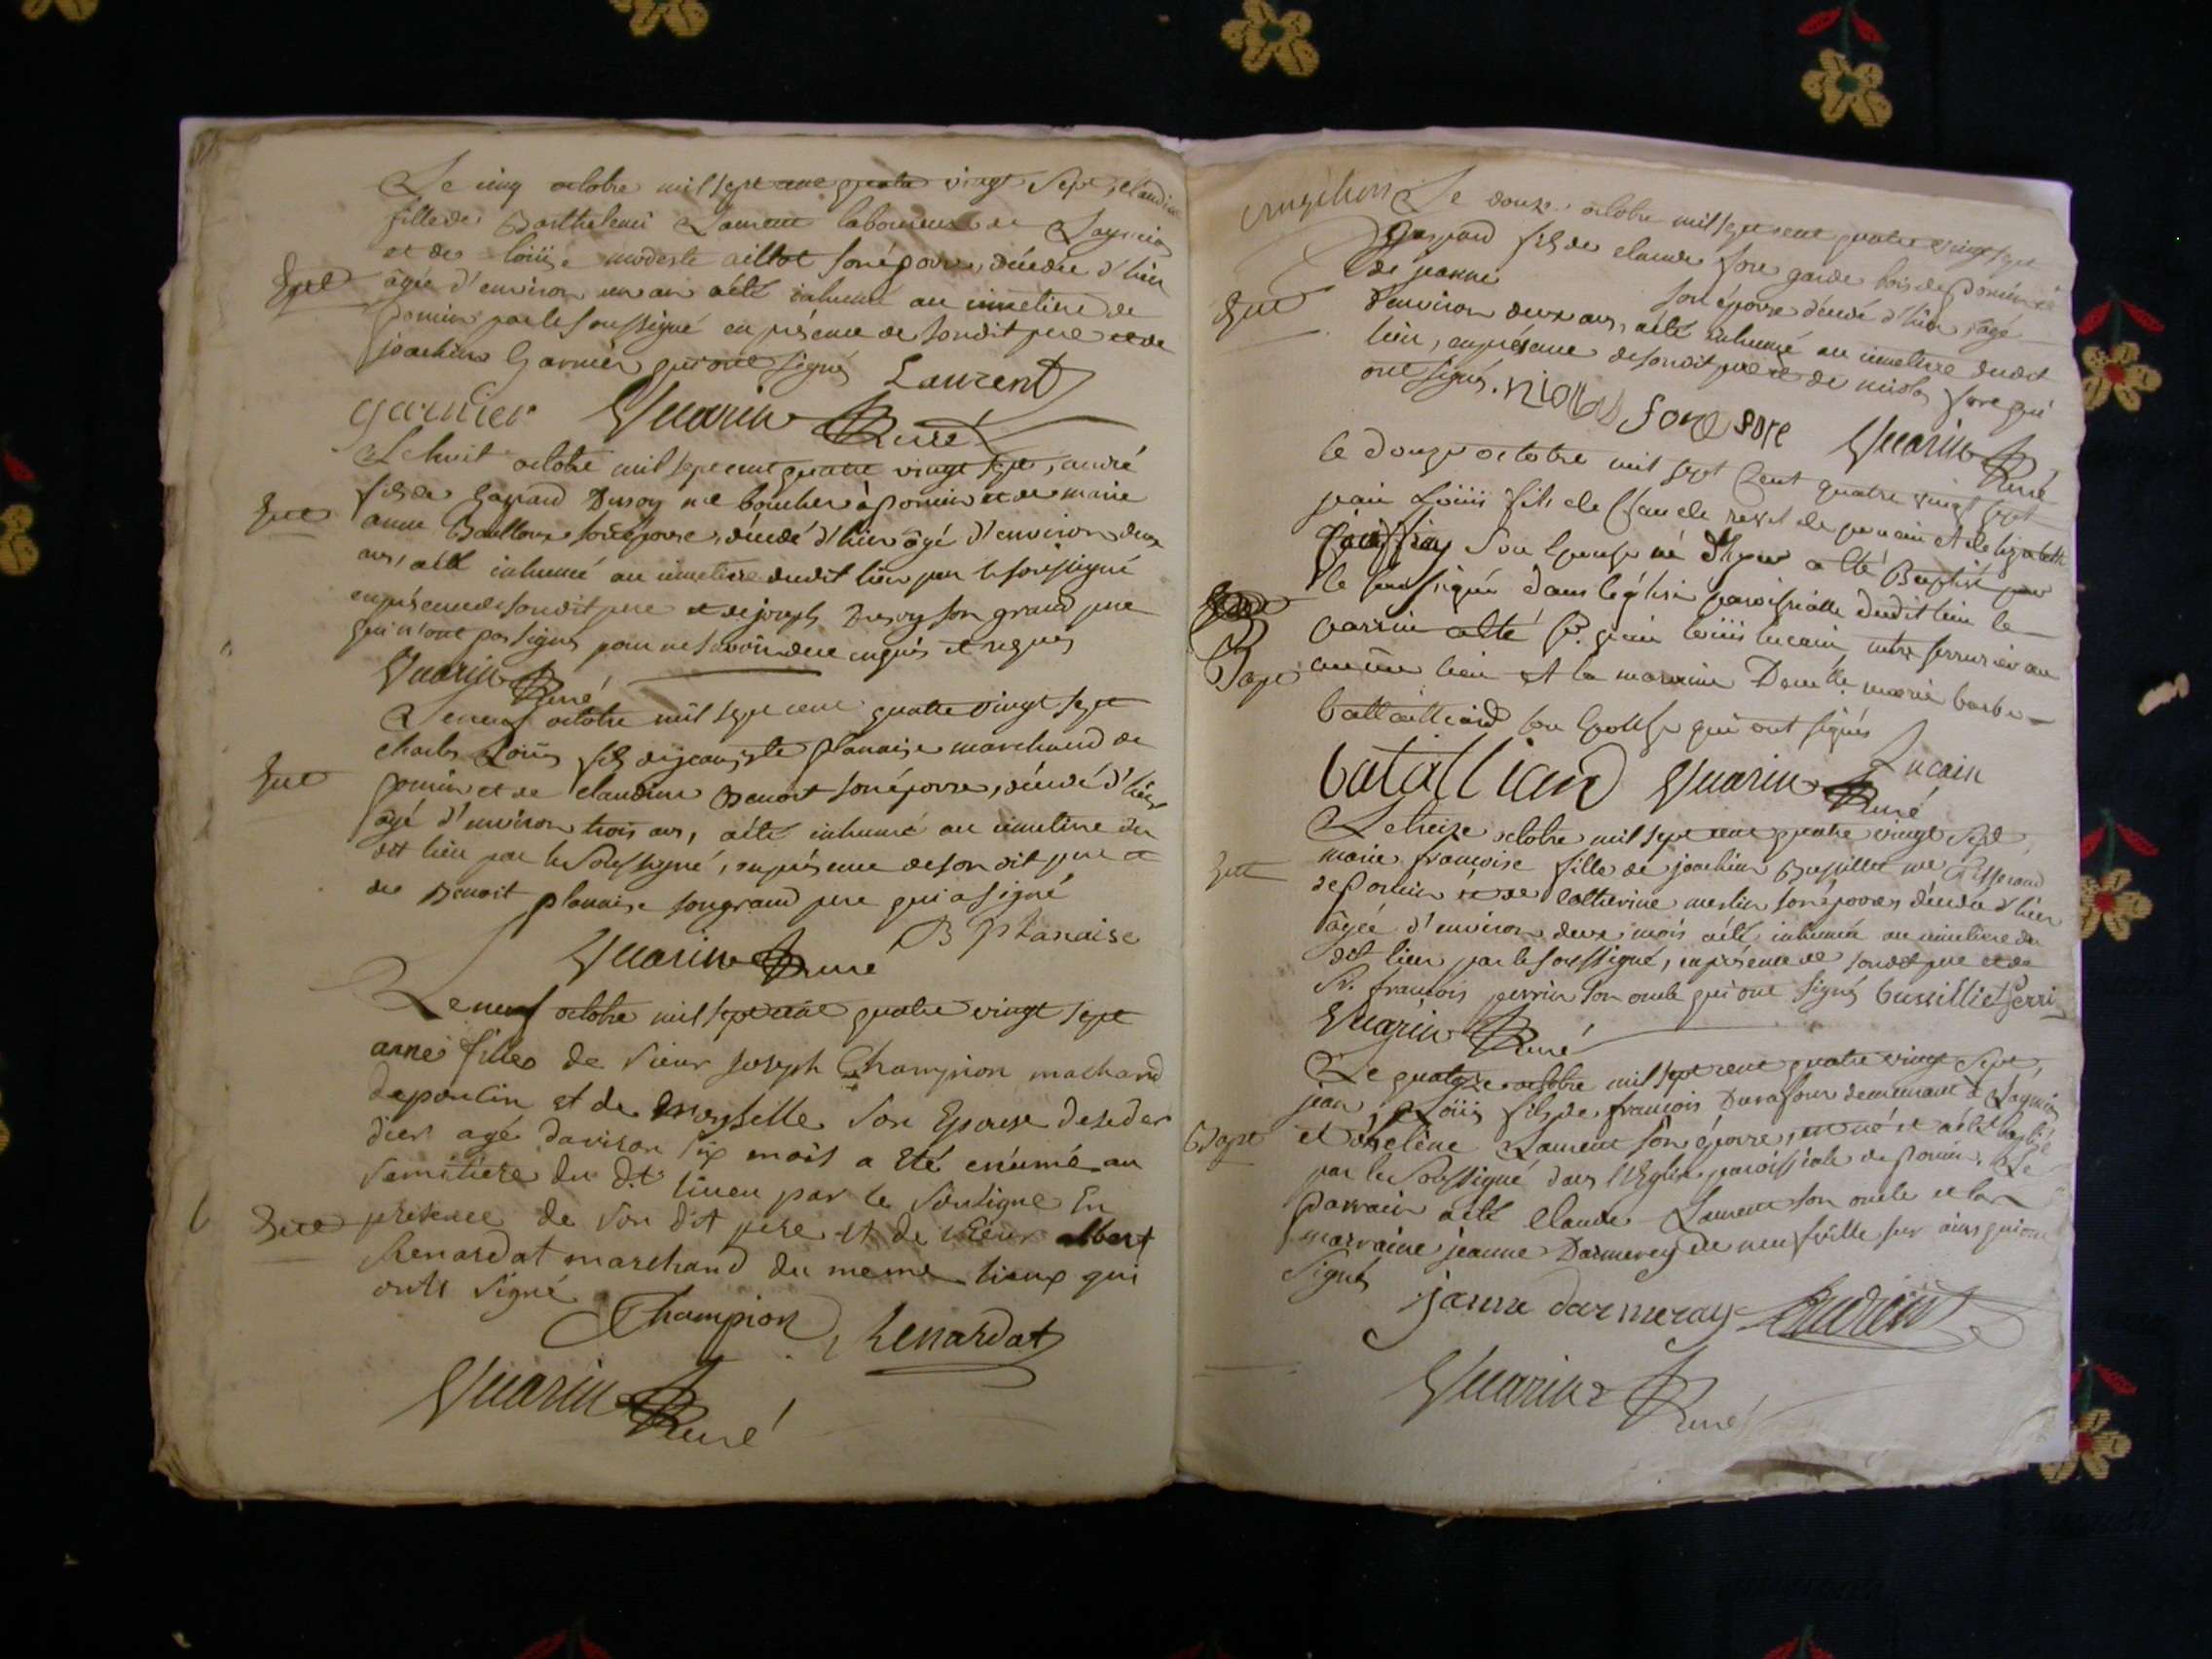 Le cinq octobre mil sept cent quatre vingt sept, claudine
fille de Barthelemi Laurent laboureur de Laymia
et de loüise modeste aillot son épouse, décédée d'hier
Sept âgée d'environ un an a été inhumé au cimetiere de
poncin par le soussigné en présence de sondit pere et de
joachim Garnier qui ont signés Laurent
garnier Guarin Curé
Le huit octobre mil sept cent quatre vingt sept, andré
fils de Gaspard Dusoy me boucher à poncin et de marie
Sept anne son épouse, décédé d'hier âgé d'environ deux
ans, a été inhumé au cimetiere dudit lieu par le soussigné
en présence de sondit pere et de joseph Dusoy son grand pere
qui n'ont pas signés pour ne savoir de ce enquis et requis
Guarin Curé
Le neuf octobre mil sept cent quatre vingt sept
charles Loüis fils de jean planaise marchand de
Sept poncin et de claudine Benoit son épouse, décédé d'hier
âgé d'environ trois ans, a été inhumé au cimetiere du
dit lieu par le soussigné, en présence de son dit pere et
de Benoit planaise son grand pere qui a signé
Guarin Curé B Planaise
Le neuf octobre mil sept cent quatre vingt sept
anne fille de sieur joseph Champion machand
deponcin et de son Epouse deseder
dier agé davison six mois a été enumé au
semitiere du dit lieu par le soutigne En
Sept presence de son dit pere et de sieur albert
Renardat marchand du meme lieux qui
onts signé
Champion Renardat
Guarin Curé
Le douze octobre mil sept cent quatre vingt sept
Gaspard fils de claude fore garde bois de poncin et
de jeanne son épouse décédé d'hier, âgé
Sept d'environ deux ans, a été inhumé au cimetiere dudit
lieu, en présence de sondit pere et de nicolas fore qui
ont signés. fore fore Guarin Curé
le Douze octobre mil sept Cent quatre vingt sept
jean Loüis fils de Claude de poncin et de lizabeth
son Epouse né d'hyer a été Baptisé par
le soussigné dans l'église paroissialle dudit lieu le
parrin a été Sr. jean loüis lucain mtre serrurier au
Bapt même lieu et la marraine Demlle. marie barbe
battailliard son Epouse qui ont signés
batalliard Guarin Curé Lucain
Le treize octobre mil sept cent quatre vingt sept
Sept marie françoise fille de joachim Bussillet me Tisserand
de poncin et de Catherine merlin son épouse, décédée d'hier
âgée d'environ deux mois a été inhumée au cimetiere du
dit lieu par le soussigné, en présence de sondit pere et de
Sr. francois perrin son oncle qui ont signés bussilliet perri
Guarin Curé
Le quatorze octobre mil sept cent quatre vingt sept,
jean Loüis fils de francois Durafour demeurant à Laymia
Bapt et d'helène Laurent son épouse, est né et a été baptisé
par le soussigné dans l'Eglise paroissiale de poncin. Le
parrain a été claude Laurent son oncle et la
marraine jeanne Darmerey de neufville sur ains qui ont
signés
janne darmeray Laurent
Guarin Curé